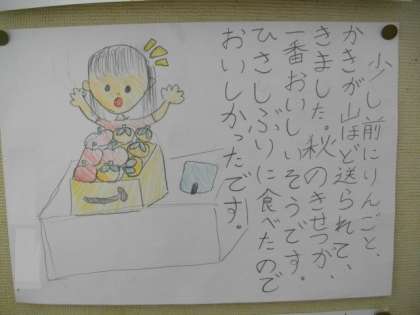 少し前にりんごと、
かきが山ほど送られてい
きました。秋のきせつが、
一番おいしいそうです。
ひさしぶりに食べたので
おいしかったです。